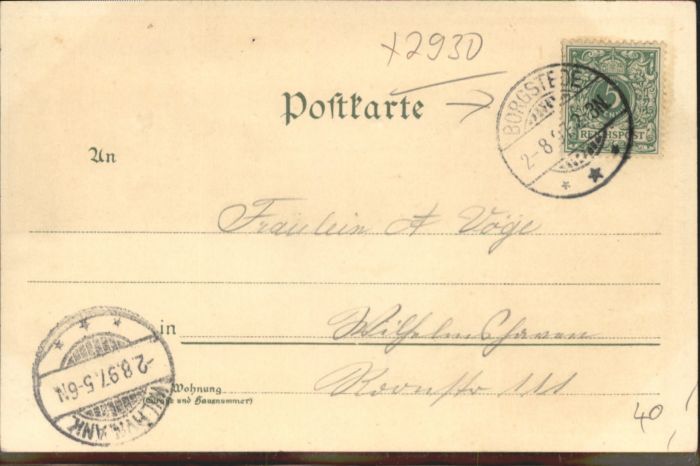 x2930
Postkarte
BORGSTEDE
2-8
5
REICHSPOST
An
Fräulein A Vöge
in Wilhelmshaven
-2.8.97.5-6N
Wohnung
(Straße und Hausnummer)
Roonstr 111
40